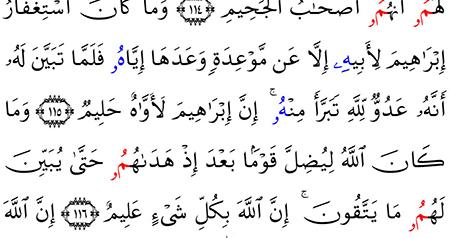 لَهُمُۥ أَنَّهُمُۥ أَصْحَٰبُ الْجَحِيمِ ۝١١٤ وَمَا كَانَ اسْتِغْفَارُ
إِبْرَاهِيمَ لِأَبِيهِۦ إِلَّا عَن مَّوْعِدَةٍ وَعَدَهَا إِيَّاهُۥ فَلَمَّا تَبَيَّنَ لَهُۥ
أَنَّهُۥ عَدُوٌّ لِلَّهِ تَبَرَّأَ مِنْهُۥ ۚ إِنَّ إِبْرَاهِيمَ لَأَوَّاهٌ حَلِيمٌ ۝١١٥ وَمَا
كَانَ اللَّهُ لِيُضِلَّ قَوْمًا بَعْدَ إِذْ هَدَىٰهُمُۥ حَتَّىٰ يُبَيِّنَ
لَهُمُۥ مَا يَتَّقُونَ ۚ إِنَّ اللَّهَ بِكُلِّ شَىْءٍ عَلِيمٌ ۝١١٦ إِنَّ اللَّهَ